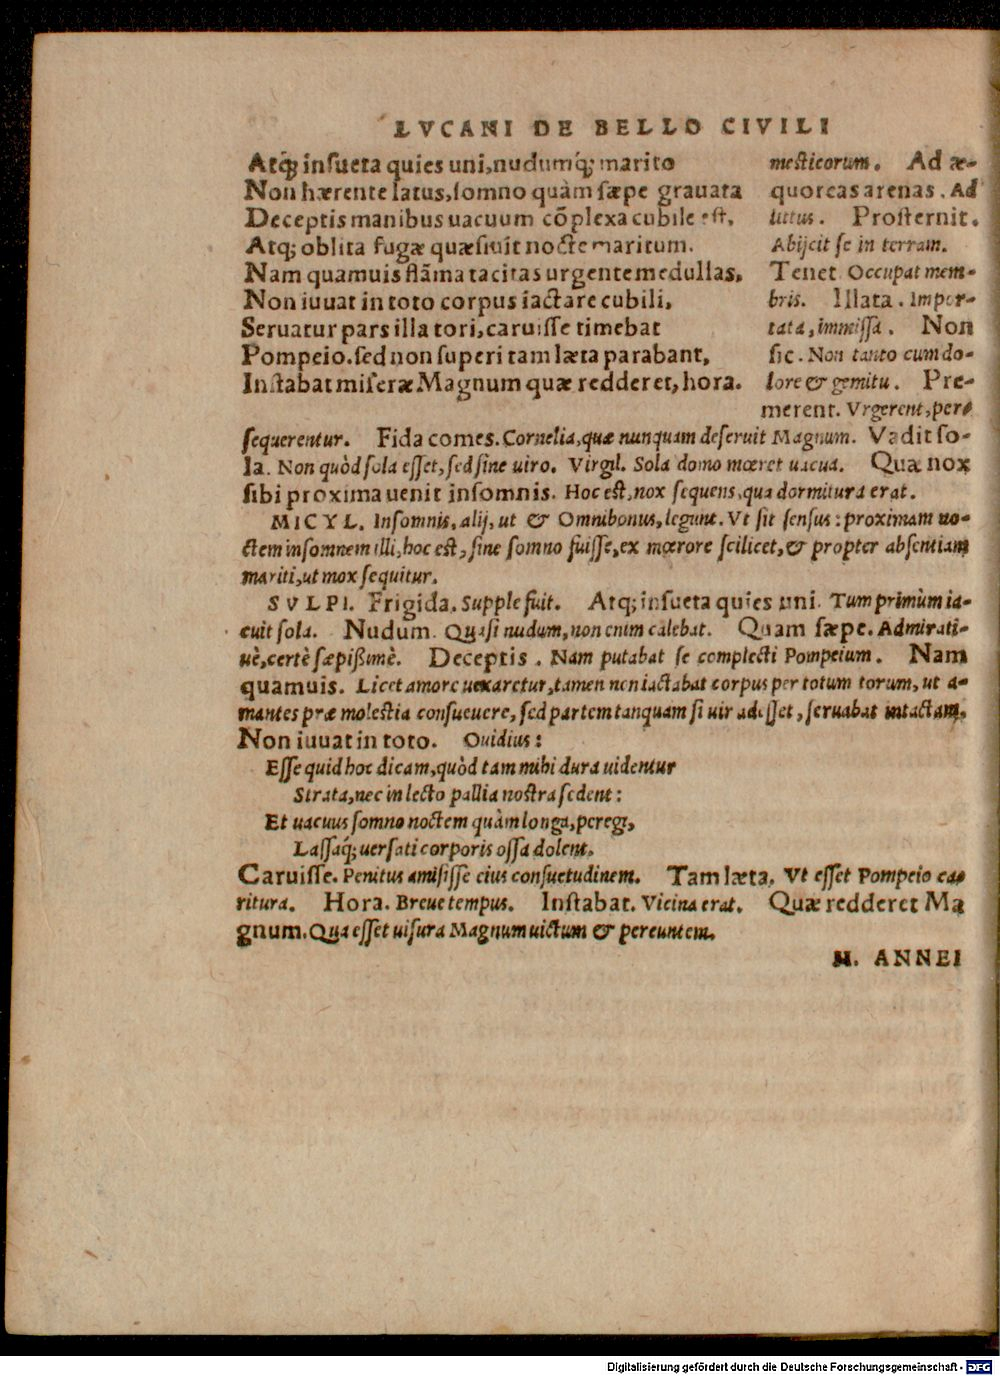 LVCANI DE BELLO CIVILI
Atq; insueta quies uni, nudumq́; marito
Non hærente latus, somno quàm sæpe grauata
Deceptis manibus uacuum cõplexa cubile est,
Atq; oblita fugæ quæsiuit nocte maritum.
Nam quamuis flãma tacitas urgente medullas,
Non iuuat in toto corpus iactare cubili,
Seruatur pars illa tori, caruisse timebat
Pompeio. sed non superi tam læta parabant,
Instabat miseræ Magnum quæ redderet, hora.
mesticorum. Ad æ-
quoreas arenas. Ad
littus. Prosternit.
Abijcit se in terram.
Tenet Occupat mem-
bris. Illata. Impor-
tata, immissa. Non
sic. Non tanto cum do-
lore & gemitu. Pre-
merent. Vrgerent, per-
sequerentur. Fida comes. Cornelia, quæ nunquam deseruit Magnum. Vadit so-
la. Non quòd sola esset, sed sine uiro. Virgil. Sola domo mœret uacua. Qua nox
sibi proxima uenit insomnis. Hoc est, nox sequens, qua dormitura erat.
MICYL. Insomnis, alij, ut & Omnibonus, legunt. Vt sit sensus: proximam no-
ctem insomnem illi, hoc est, sine somno fuisse, ex mœrore scilicet, & propter absentiam
mariti, ut mox sequitur.
SVLPI. Frigida. Supple fuit. Atq; insueta quies uni. Tum primùm ia-
cuit sola. Nudum. Quasi nudum, non enim calebat. Quam sæpe. Admirati-
uè, certè sæpißimè. Deceptis. Nam putabat se complecti Pompeium. Nam
quamuis. Licet amore uexaretur, tamen non iactabat corpus per totum torum, ut a-
mantes præ molestia consueuere, sed partem tanquam si uir adesset, seruabat intactam.
Non iuuat in toto. Ouidius:
Esse quid hoc dicam, quòd tam mihi dura uidentur
Strata, nec in lecto pallia nostra sedent:
Et uacuus somno noctem quàm longa, peregi,
Lassaq́; uersati corporis ossa dolent.
Caruisse. Penitus amisisse eius consuetudinem. Tam læta. Vt esset Pompeio ca-
ritura. Hora. Breue tempus. Instabat. Vicina erat. Quæ redderet Ma
gnum. Qua esset uisura Magnum uictum & pereuntem.
M. ANNEI
Digitalisierung gefördert durch die Deutsche Forschungsgemeinschaft - DFG